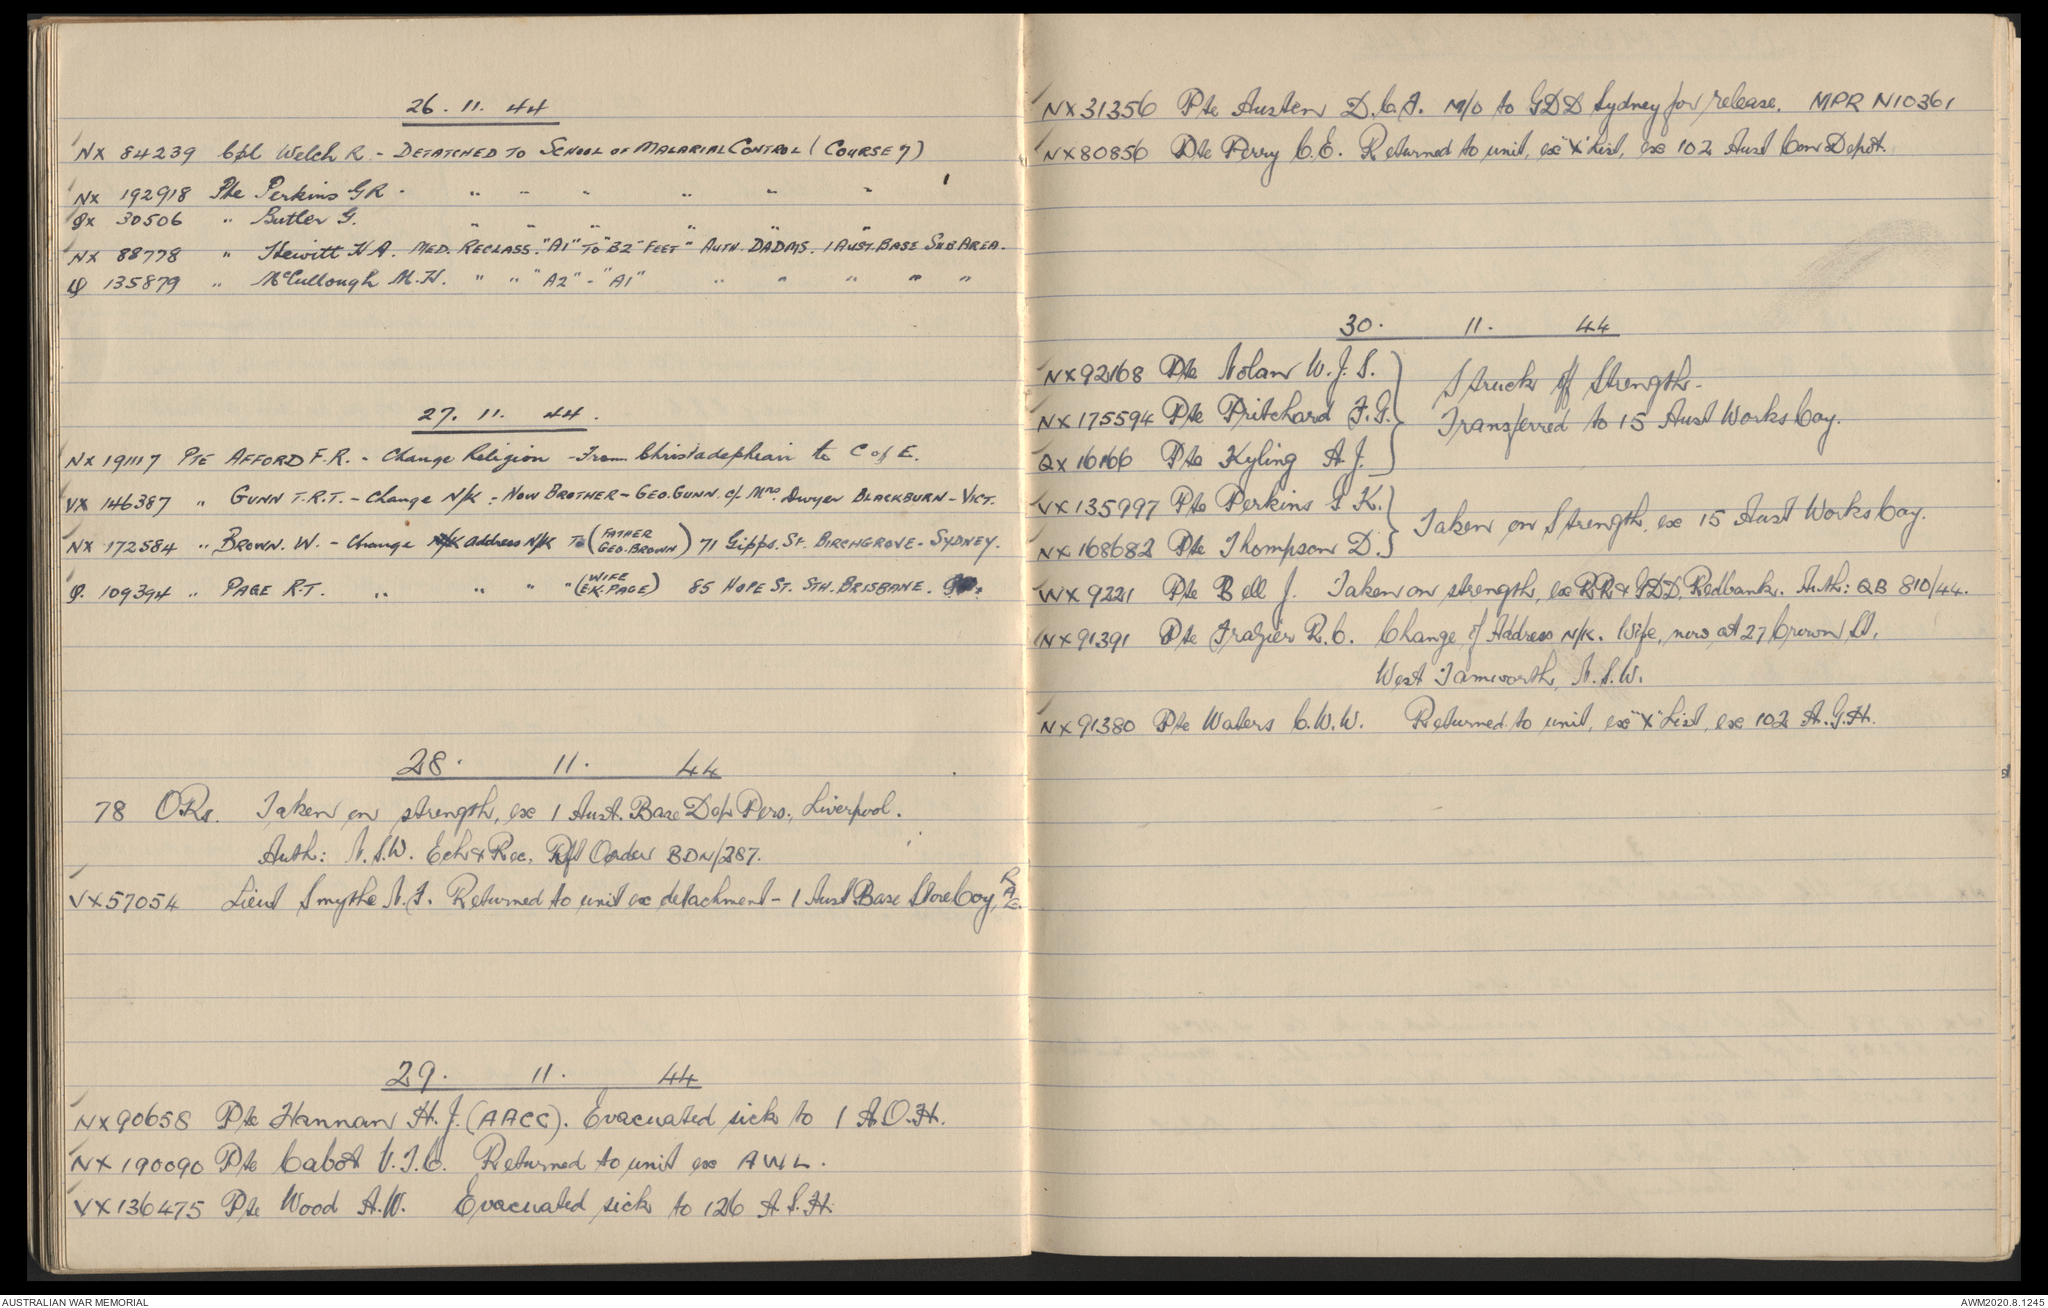 26. 11. 44
NX 84239 Cpl Welch R - DETATCHED TO SCHOOL OF MALARIAL CONTROL (COURSE 7)
NX 192918 Pte Perkins GR - " " " " " "
QX 30506 " Butler G. " " " " "
NX 88778 " Hewitt H A. MED. RECLASS. "A1" TO "B2" FEET" AUTH. DADMS. 1 AUST. BASE SUB AREA.
Q 135879 " McCullough M.H. " " "A2" - "A1" " " " " "
27. 11. 44.
NX 191117 PTE AFFORD F.R. - Change Religion - From Christadephian to C of E.
VX 146387 " GUNN T.R.T. - Change N/K - NOW BROTHER - GEO. GUNN. c/ Mrs. Dwyer BLACKBURN - VICT.
NX 172584 " BROWN. W. - Change N/K address N/K TO (FATHER GEO. BROWN) 71 Gipps. St. BIRCHGROVE - SYDNEY.
Q. 109394 " PAGE R.T. " " " " (WIFE E.K. PAGE) 85 HOPE ST. STH. BRISBANE.
28. 11. 44
78 ORs. Taken on strength, ex 1 Aust. Base Dep Pers., Liverpool.
Auth: N.S.W. Ech & Rec. Dft Order BDN/287.
VX57054 Lieut Smythe N.F. Returned to unit ex detachment - 1 Aust Base Store Coy,
29. 11. 44
NX90658 Pte Hannan H.J. (AACC). Evacuated sick to 1 A.O.H.
NX190090 Pte Cabot V.J.C. Returned to unit ex AWL.
VX136475 Pte Wood A.W. Evacuated sick to 126 A.S.H.
NX31356 Pte Austen D.C.A. M/O to GDD Sydney for release. MPR N10361
NX80856 Pte Perry C.E. Returned to unit, ex "X" List, ex 102 Aust Con Depot.
30. 11. 44
NX92168 Pte Nolan W.J.S.
Struck off Strength.
NX175594 Pte Pritchard F.G.
Transferred to 15 Aust Works Coy.
QX16166 Pte Kyling A.J.
VX135997 Pte Perkins F K.
Taken on Strength, ex 15 Aust Works Coy.
NX168682 Pte Thompson D.
WX9221 Pte Bell J. Taken on strength, ex RR & GDD, Redbank. Auth: QB 810/44.
NX91391 Pte Frazier R.C. Change of Address N/K. Wife, now at 27 Crown St,
West Tamworth, N.S.W.
NX91380 Pte Waters C.W.W. Returned to unit, ex "X" List, ex 102 A.G.H.
AUSTRALIAN WAR MEMORIAL
AWM2020.8.1245